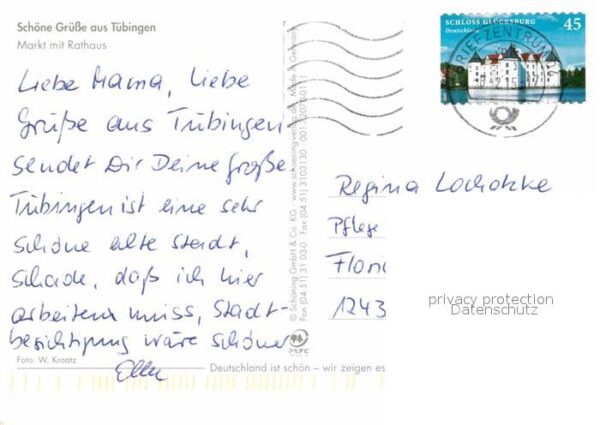 Schöne Grüße aus Tübingen
Markt mit Rathaus
Liebe Mama, Liebe
Grüße aus Tübingen
sendet Dir Deine große
Tübingen ist eine sehr
schöne alte Stadt,
schade, daß ich hier
arbeiten muss, Stadt-
besichtigung wäre schöner
Foto: W. Kraatz
Deutschland ist schön – wir zeigen es
© Schöning GmbH & Co. KG · www.schoening-verlag.de · Made in Germany
Fon (04 51) 31 03-0 · Fax (04 51) 3103130
SCHLOSS GLÜCKSBURG
Deutschland
45
BRIEFZENTRUM
Regina Lochotzke
Pflege
Flori
1243
privacy protection
Datenschutz